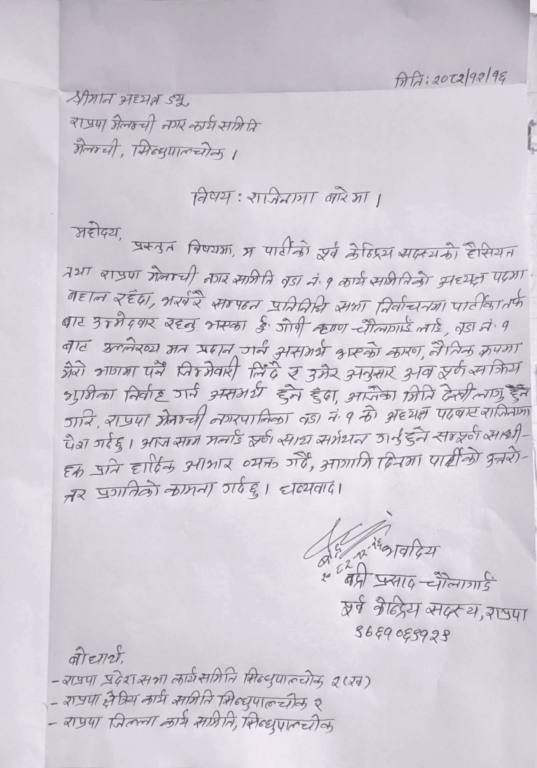 मिति: २०८२/१२/१६
श्रीमान अध्यक्ष ज्यू,
राप्रपा मेलम्ची नगर कार्य समिति
मेलम्ची, सिन्धुपाल्चोक ।
विषय: राजिनामा बारेमा ।
महोदय,
प्रस्तुत विषयमा, म पार्टीको पूर्व केन्द्रिय सदस्यको हैसियत
तथा राप्रपा मेलम्ची नगर समिति वडा नं. १ कार्य समितिको अध्यक्ष पदमा
बहाल रहँदा, भर्खरै सम्पन्न प्रतिनिधि सभा निर्वाचनमा पार्टीका तर्फ
बाट उम्मेदवार रहनु भएका ई. गोपी कृष्ण चौलागाई लाई, वडा नं. १
बाट उल्लेख्य मत प्रदान गर्न असमर्थ भएको कारण, नैतिक रूपमा
मेरो भागमा पर्ने जिम्मेवारी लिँदै र उमेर अनुसार अब पूर्ण सक्रिय
भूमिका निर्वाह गर्न असमर्थ हुने हुँदा, आजैका मिति देखी लागु हुने
गरि, राप्रपा मेलम्ची नगरपालिका वडा नं. १ को अध्यक्ष पदबाट राजिनामा
पेश गर्दछु । आज सम्म मलाई पूर्ण साथ समर्थन गर्नुहुने सम्पूर्ण साथी-
हरू प्रति हार्दिक आभार व्यक्त गर्दै, आगामि दिनमा पार्टीको उत्तरो-
त्तर प्रगतिको कामना गर्दछु । धन्यवाद ।
२०८२-१२-१६
भवदिय
बद्री प्रसाद चौलागाई
पूर्व केन्द्रिय सदस्य, राप्रपा
बोधार्थ,
- राप्रपा प्रदेश सभा कार्य समिति सिन्धुपाल्चोक २(ख)
- राप्रपा क्षेत्रिय कार्य समिति सिन्धुपाल्चोक २
- राप्रपा जिल्ला कार्य समिति, सिन्धुपाल्चोक